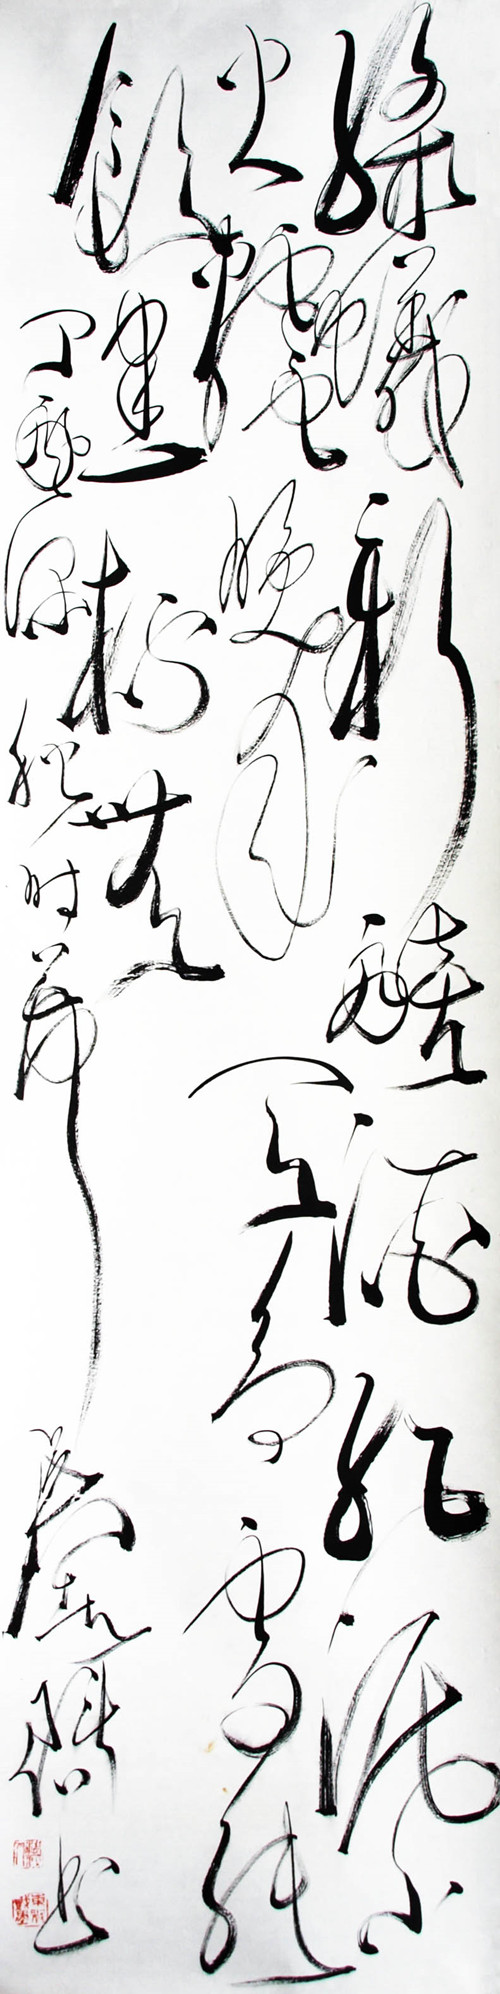 绿蚁新醅酒红泥小
火炉晚来天欲雪能
饮一杯无
丁 深秋时节 书